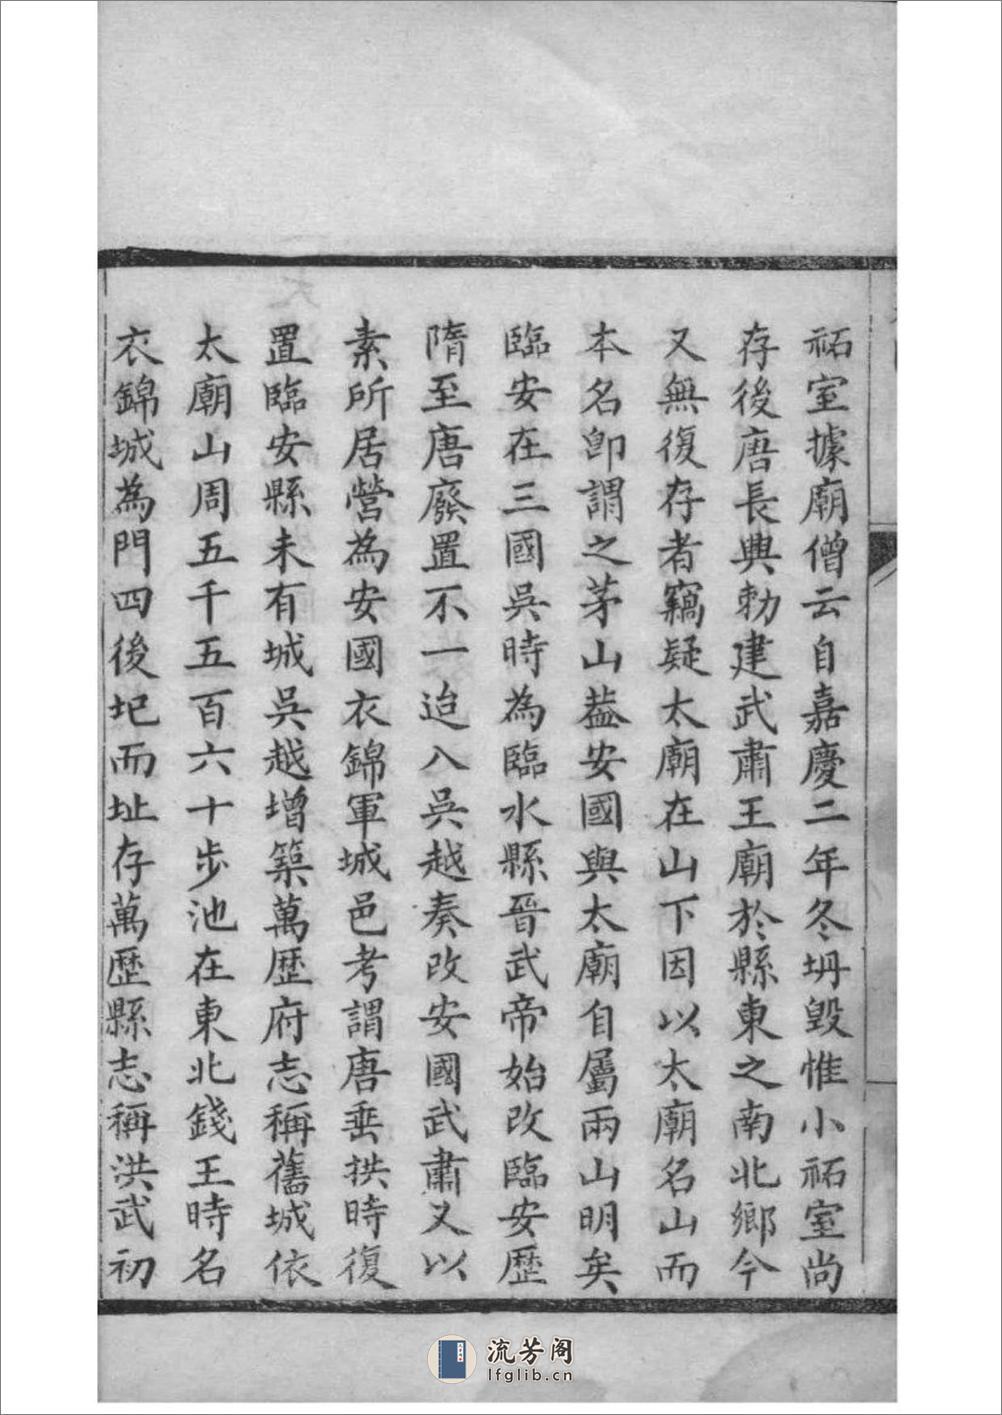 祏室據廟僧云自嘉慶二年冬坍毀惟小祏室尚
存後唐長興勅建武肅王廟於縣東之南北鄉今
又無復存者竊疑太廟在山下因以太廟名山而
本名卽謂之茅山葢安國與太廟自屬兩山明矣
臨安在三國吳時為臨水縣晉武帝始改臨安歷
隋至唐廢置不一迨入吳越奏改安國武肅又以
素所居營為安國衣錦軍城邑考謂唐垂拱時復
置臨安縣未有城吳越增築萬歷府志稱舊城依
太廟山周五千五百六十步池在東北錢王時名
衣錦城為門四後圮而址存萬歷縣志稱洪武初
流芳阁
lfglib.cn